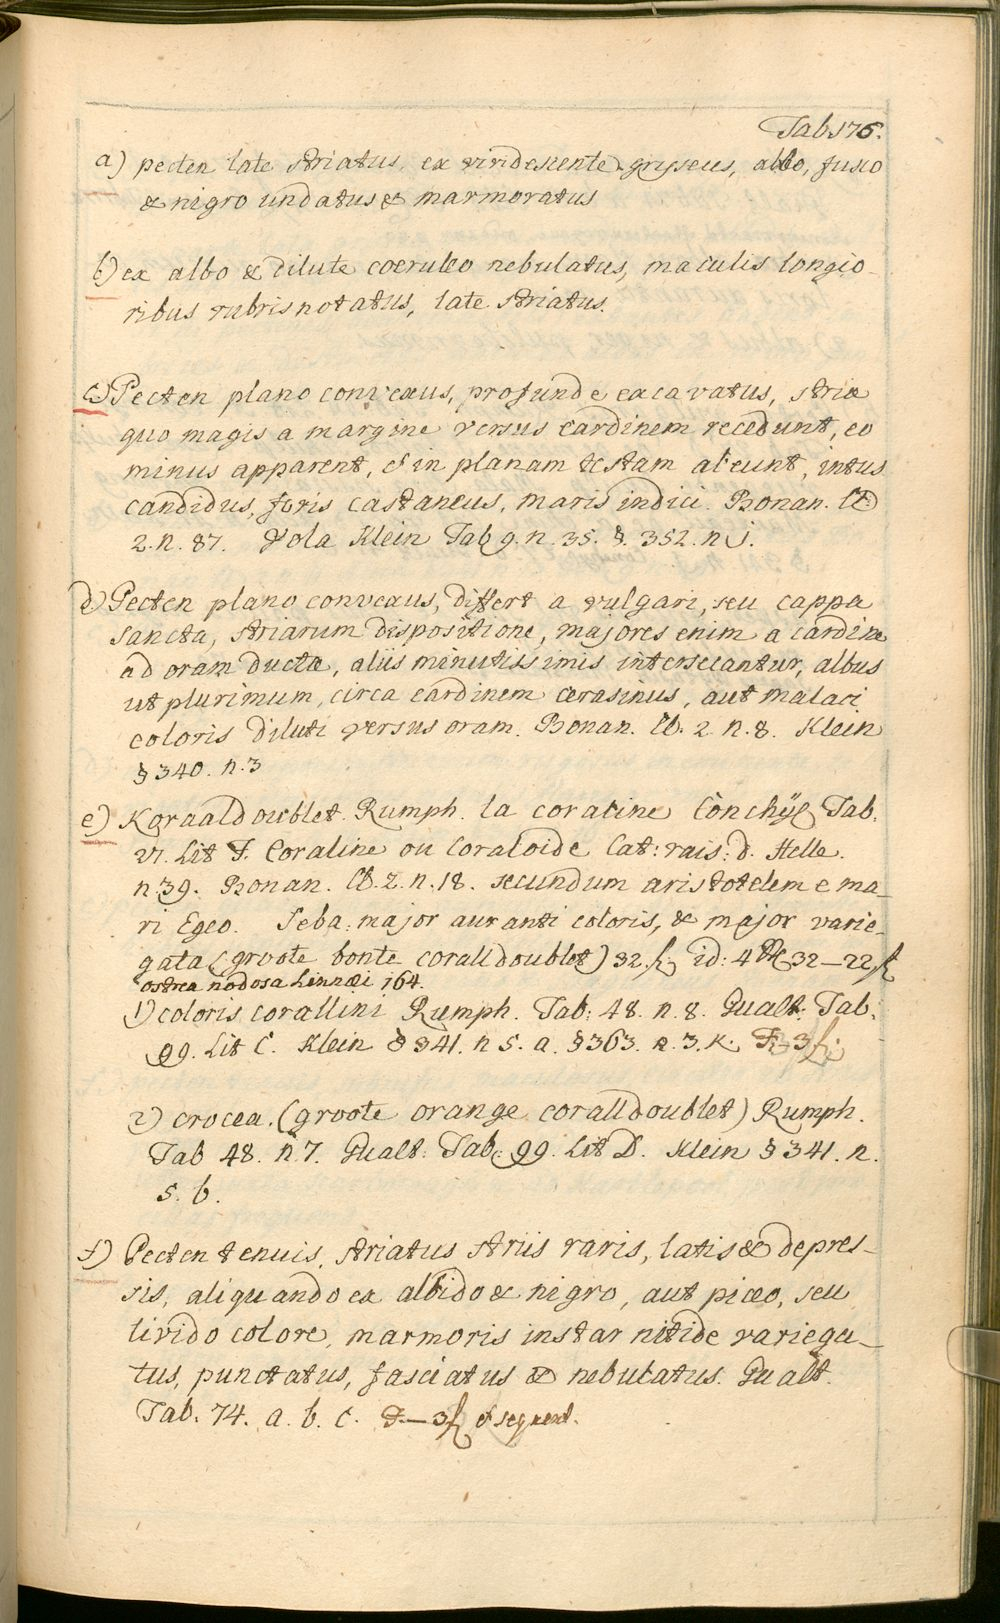 Tab 176.
a) pecten late striatus, ex viridescente gryseus, albo, fusco
& nigro undatus & marmoratus
b) ex albo & dilute coeruleo nebulatus, maculis longio-
ribus rubris notatus, late striatus.
c) Pecten plano convexus, profunde excavatus, striæ
quo magis a margine versus cardinem recedunt, eo
minus apparent, & in planam testam abeunt, intus
candidus, foris castaneus, maris indici. Bonan. Cl.
2. n. 87. Vola Klein Tab 9. n. 35. §. 352. n j.
d) Pecten plano convexus, differt a vulgari, seu cappa
sancta, striarum dispositione, majores enim a cardine
ad oram ducta, aliis minutissimis intersecantur, albus
ut plurimum, circa cardinem cerasinus, aut malari
coloris diluti versus oram. Bonan. Cl. 2. n. 8. Klein
§ 340. n. 3
e) Koraaldoublet Rumph. la coraline Conchÿl Tab.
VI. Lit F. Coraline ou Coraloide Cat: rais: d. Helle.
n 39. Bonan. Cl. 2. n. 18. secundum aristotelem e ma-
ri Egeo. Seba, major auranti coloris, & major varie-
gata (groote bonte coralldoublet) 32. id: 4 32–22
ostrea nodosa Linnæi 164.
1) coloris corallini Rumph. Tab: 48. n. 8. Gualt: Tab.
99. Lit C. Klein § 341. n 5. a. § 363. n. 3. K. F–3
2) crocea. (groote orange coralldoublet) Rumph.
Tab 48. n 7. Gualt: Tab: 99. Lit D. Klein § 341. n.
5. b.
f) Pecten tenuis, striatus striis raris, latis & depres-
sis, aliquando ex albido & nigro, aut piceo, seu
livido colore, marmoris instar nitide variega-
tus, punctatus, fasciatus & nebulatus. Gualt.
Tab. 74. a. b. c. F.–3 & sequent.